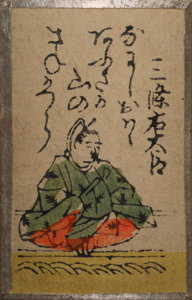 三條右大臣
なにしおはゝ
あふさか
山の
さねかつら